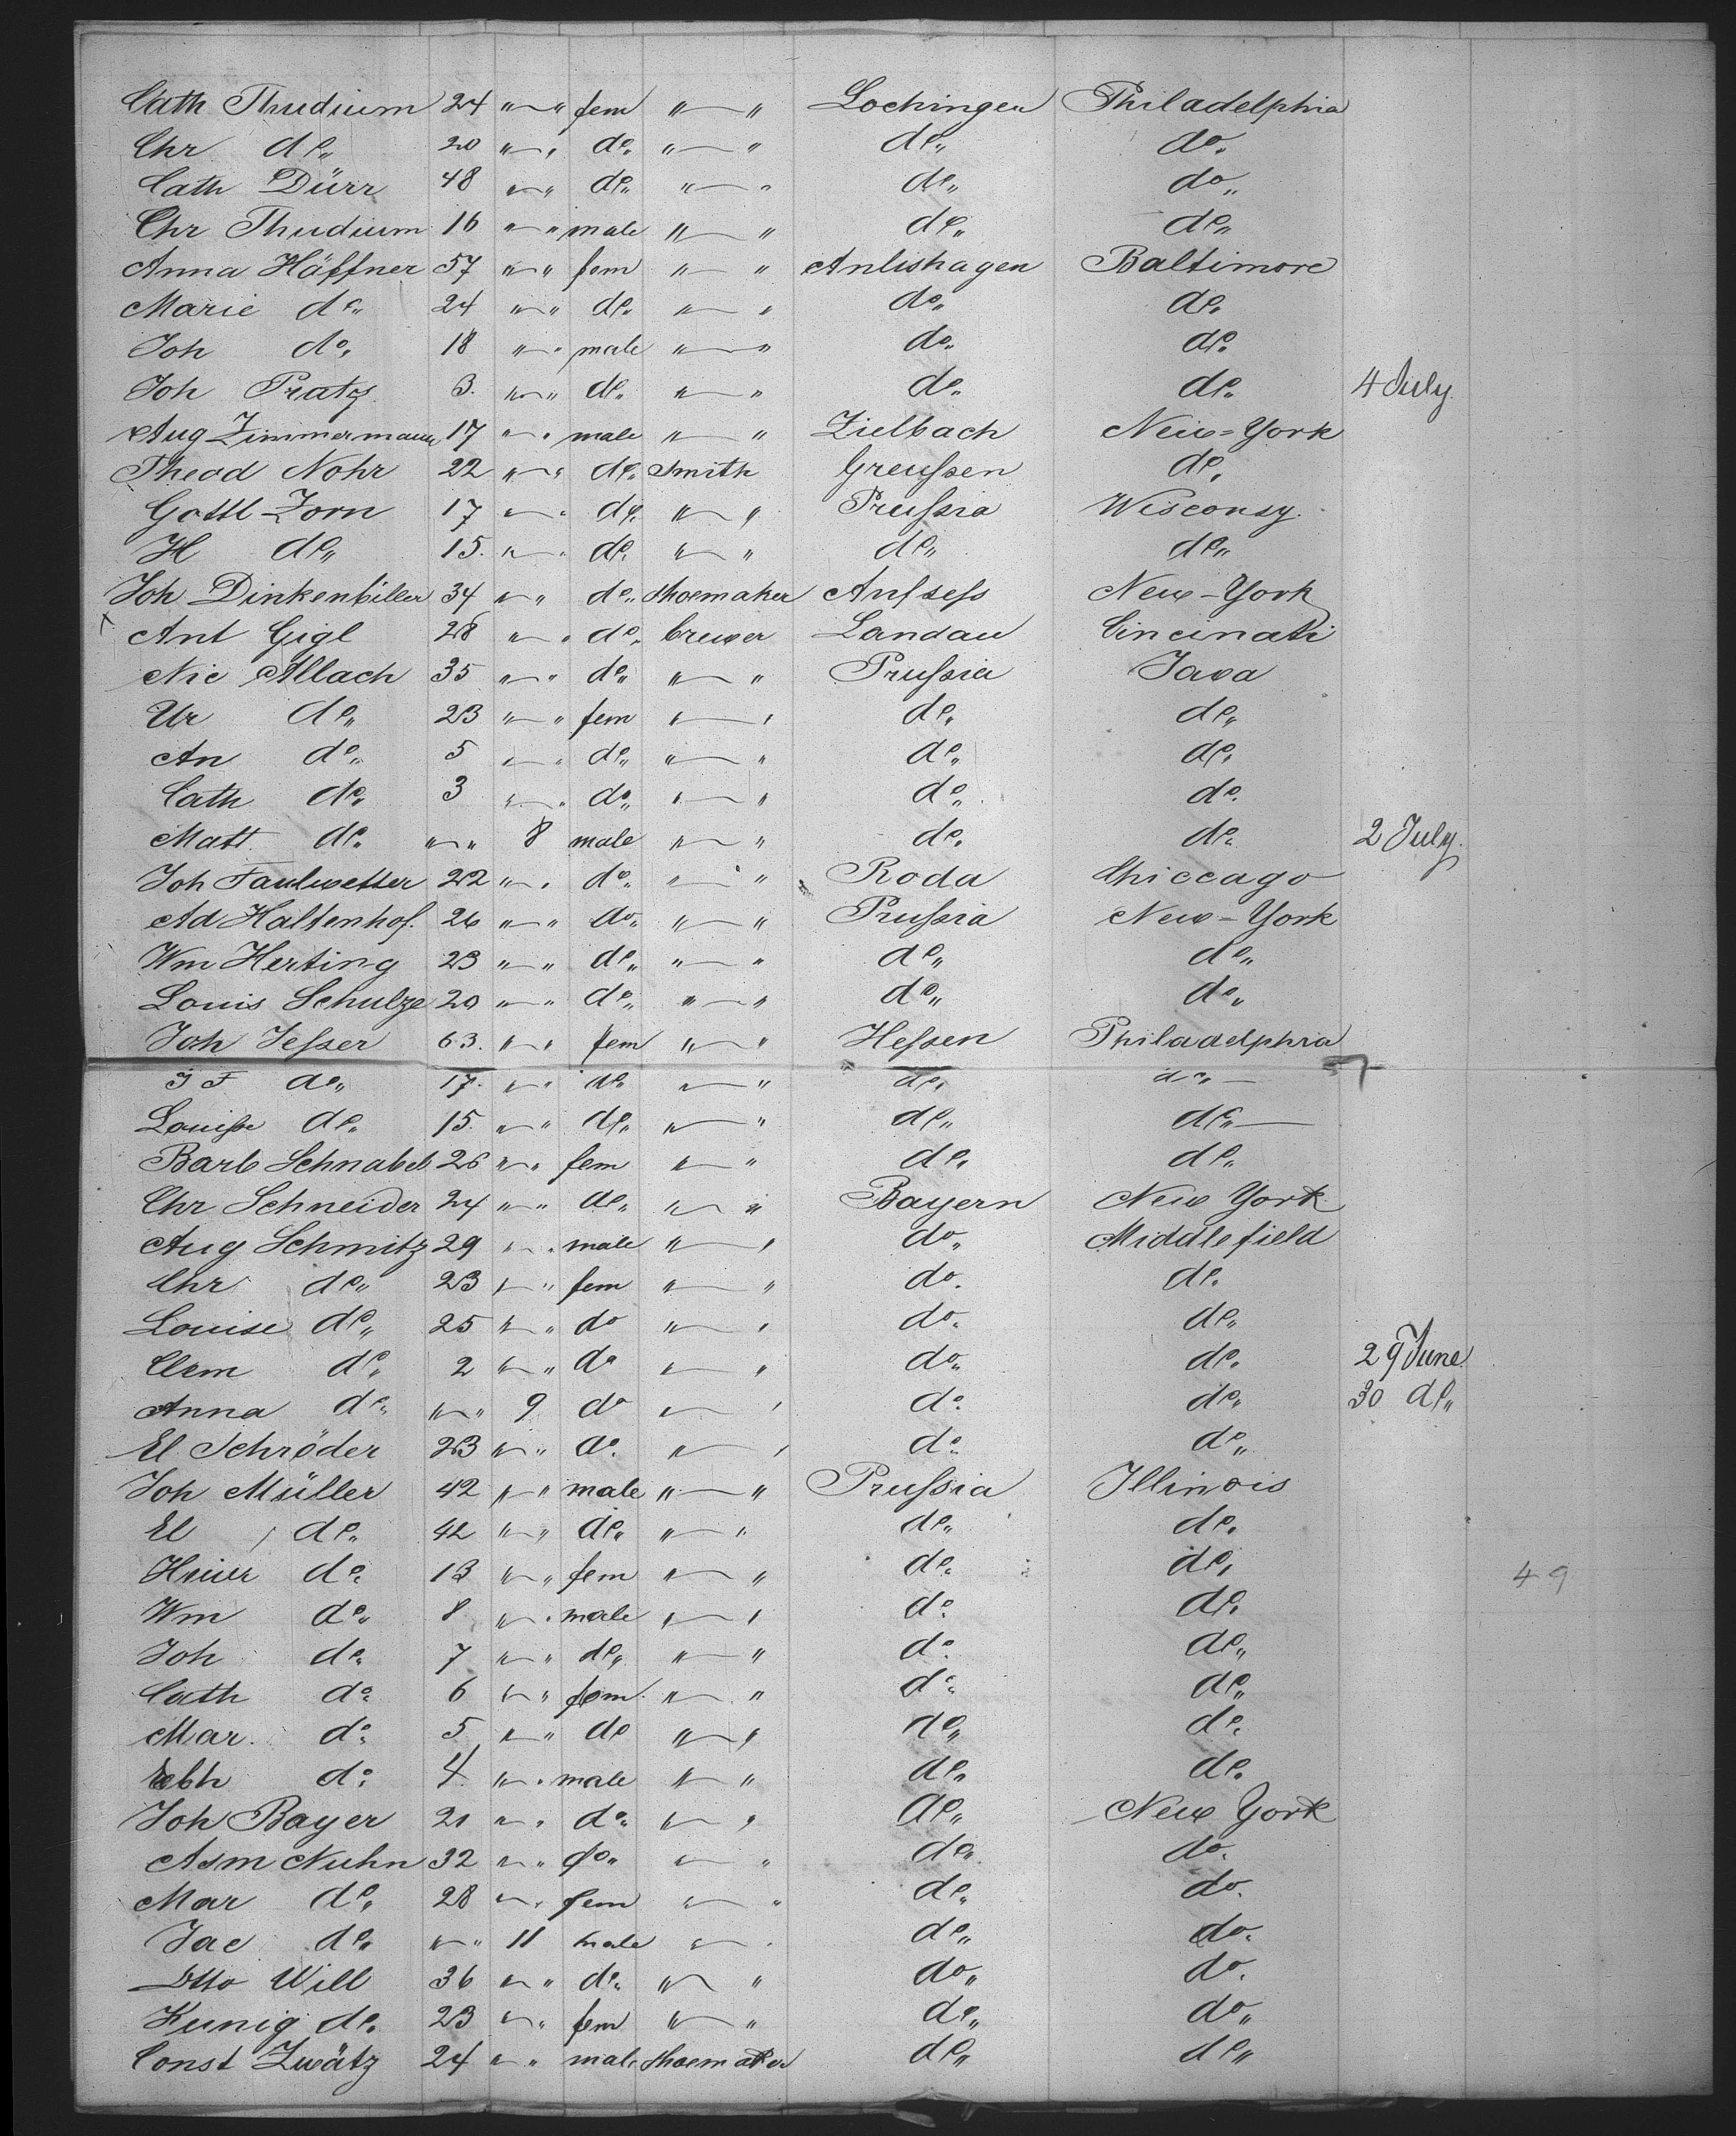 Cath Thudium 24 " — " fem " — " Lochingen Philadelphia
Chr do " 20 " — " do " " — " do " do "
Cath Dürr 48 " — " do " " — " do " do "
Chr Thudium 16 " — " male " — " do " do "
Anna Häffner 57 " — " fem " — " Anlishagen Baltimore
Marie do " 24 " — " do " " — " do " do "
Joh do " 18 " — " male " — " do " do "
Joh Pratz 3. " — " do " " — " do " do " 4 July.
Aug Zimmermann 17 " — " male " — " Zielbach New=York
Theod Nohr 22 " — " do " Smith Greußen do "
Gottl Zorn 17 " — " do " " — " Prußia Wisconsy.
H do " 15. " — " do " " — " do " do "
Joh Dinkenbiller 34 " — " do " Shoemaker Aufseß New-York
Ant Gigl 28 " — " do " brewer Landau Cincinati
Nic Allach 35 " — " do " " — " Prußia Jowa
Ur do " 23 " — " fem " — " do " do "
An do " 5 " — " do " " — " do " do "
Cath do " 3 " — " do " " — " do " do "
Matt do " " — " 8 male " — " do " do " 2 July.
Joh Faulwetter 22 " — " do " " — " Roda Chiccago
Ad Haltenhof. 26 " — " do " " — " Prußia New-York
Wm Herting 23 " — " do " " — " do " do "
Louis Schulze 20 " — " do " " — " do " do "
Joh Jeßer 63. " — " fem " — " Heßen Philadelphia
J F do " 17. " — " do " " — " do " do " —
Louise do " 15. " — " do " " — " do " do " —
Barb Schnabel 26 " — " fem " — " do " do "
Chr Schneider 24 " — " do " " — " Bayern New York
Aug Schmitz 29 " — " male " — " do " Middlefield
Chr do " 23 " — " fem " — " do " do "
Louise do " 25 " — " do " — " do " do "
Clem do " 2 " — " do " — " do " do " 29 June
Anna do " " — " 9 do " — " do " do " 30 do "
El Schröder 23 " — " do " " — " do " do "
Joh Müller 42 " — " male " — " Prußia Illinois
El do " 42 " — " do " " — " do " do "
Heiner do " 13 " — " fem " — " do " do " 49
Wm do " 8 " — " male " — " do " do "
Joh do " 7 " — " do " " — " do " do "
Cath do " 6 " — " fem " — " do " do "
Mar. do " 5 " — " do " — " do " do "
do " 4 " — " male " — " do " do "
Joh Bayer 21 " — " do " " — " do " New York
Asm Nuhn 32 " — " do " " — " do " do "
Mar do " 28 " — " fem " — " do " do "
Jac do " " — " 11 male " — " do " do "
Otto Will 36 " — " do " " — " do " do "
Kunig do " 23 " — " fem " — " do " do "
Const Zwätz 24 " — " male Shoemaker do " do "